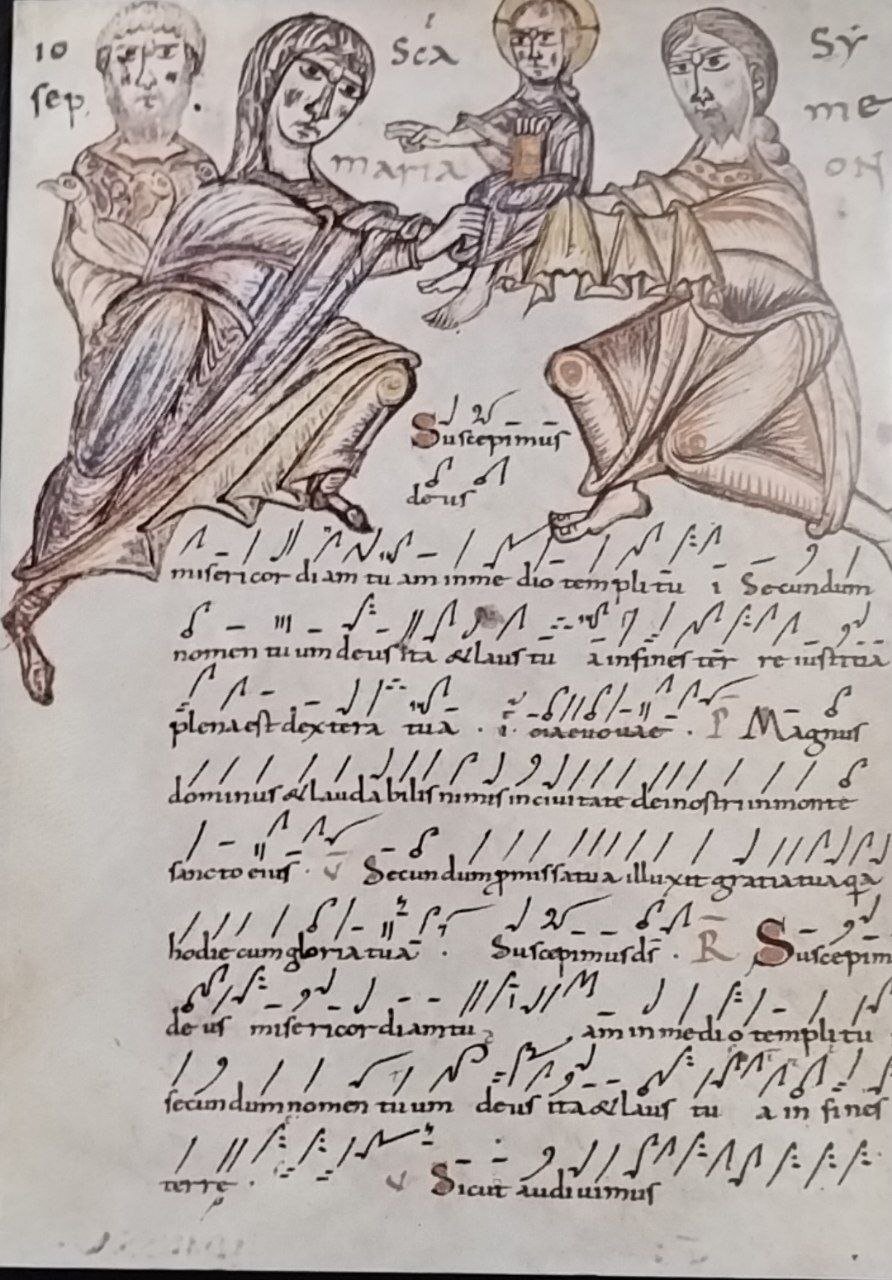 io
sep
Sca
maria
Sy
me
on
Suscepimus
deus
misericordiam tuam in medio templi tu i Secundum
nomen tuum deus ita & laus tu a in fines ter re iustitia
plena est dextera tua . euouae . P Magnus
dominus & laudabilis nimis in ciuitate dei nostri in monte
sancto eius . V Secundum missa tua illuxit gratia tua
hodie cum gloria tua . Suscepimus ds . R Suscepim
deus misericordiam tu am in medio templi tu
secundum nomen tuum deus ita & laus tu a in fines
terre . V Sicut audiuimus